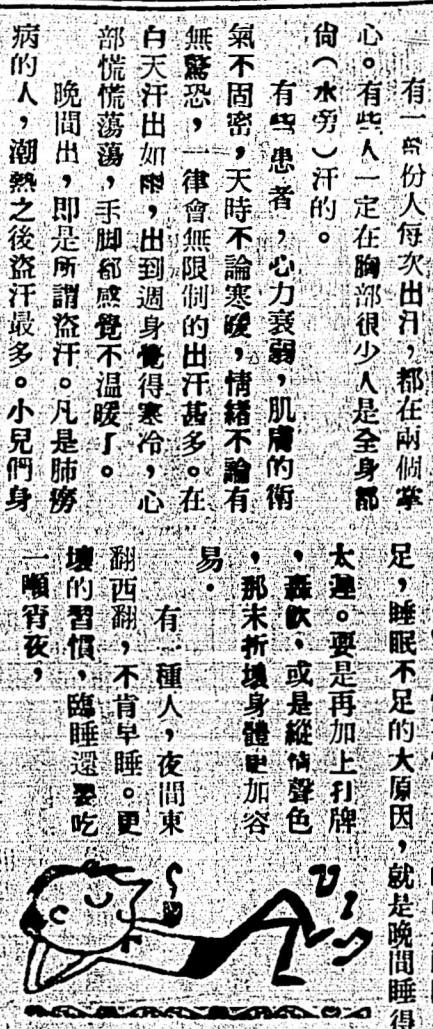 有一部份人每次出汗，都在兩個掌
心。有些人一定在胸部很少人是全身都
尙（水旁）汗的。
有些患者，心力衰弱，肌膚的衛
氣不固密，天時不論寒暖，情緒不論有
無驚恐，一律會無限制的出汗甚多。在
白天汗出如雨，出到週身覺得寒冷，心
部慌慌蕩蕩，手脚都感覺不温暖了。
晚間出，即是所謂盜汗。凡是肺癆
病的人，潮熱之後盜汗最多。小兒們身
足，睡眠不足的大原因，就是晚間睡得
太遲。要是再加上打牌
，轟飲，或是縱情聲色
，那末折壞身體更加容
易。
有一種人，夜間東
翻西翻，不肯早睡。更
壞的習慣，臨睡還要吃
一頓宵夜，